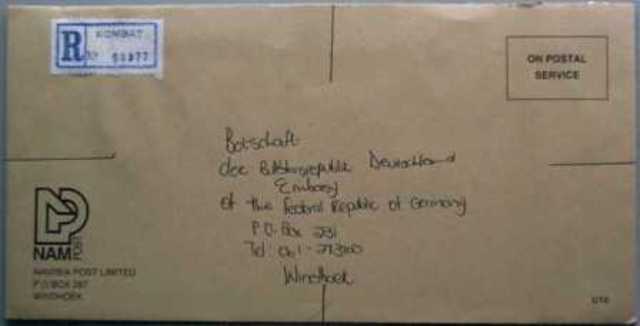 R
KOMBAT
ON POSTAL
SERVICE
Botschaft
der Bundesrepublik Deutschland
Embassy
of the Federal Republic of Germany
P.O. Box 231
Tel: 061-
Windhoek
NAM
POST
NAMIBIA POST LIMITED
P O BOX 287
WINDHOEK